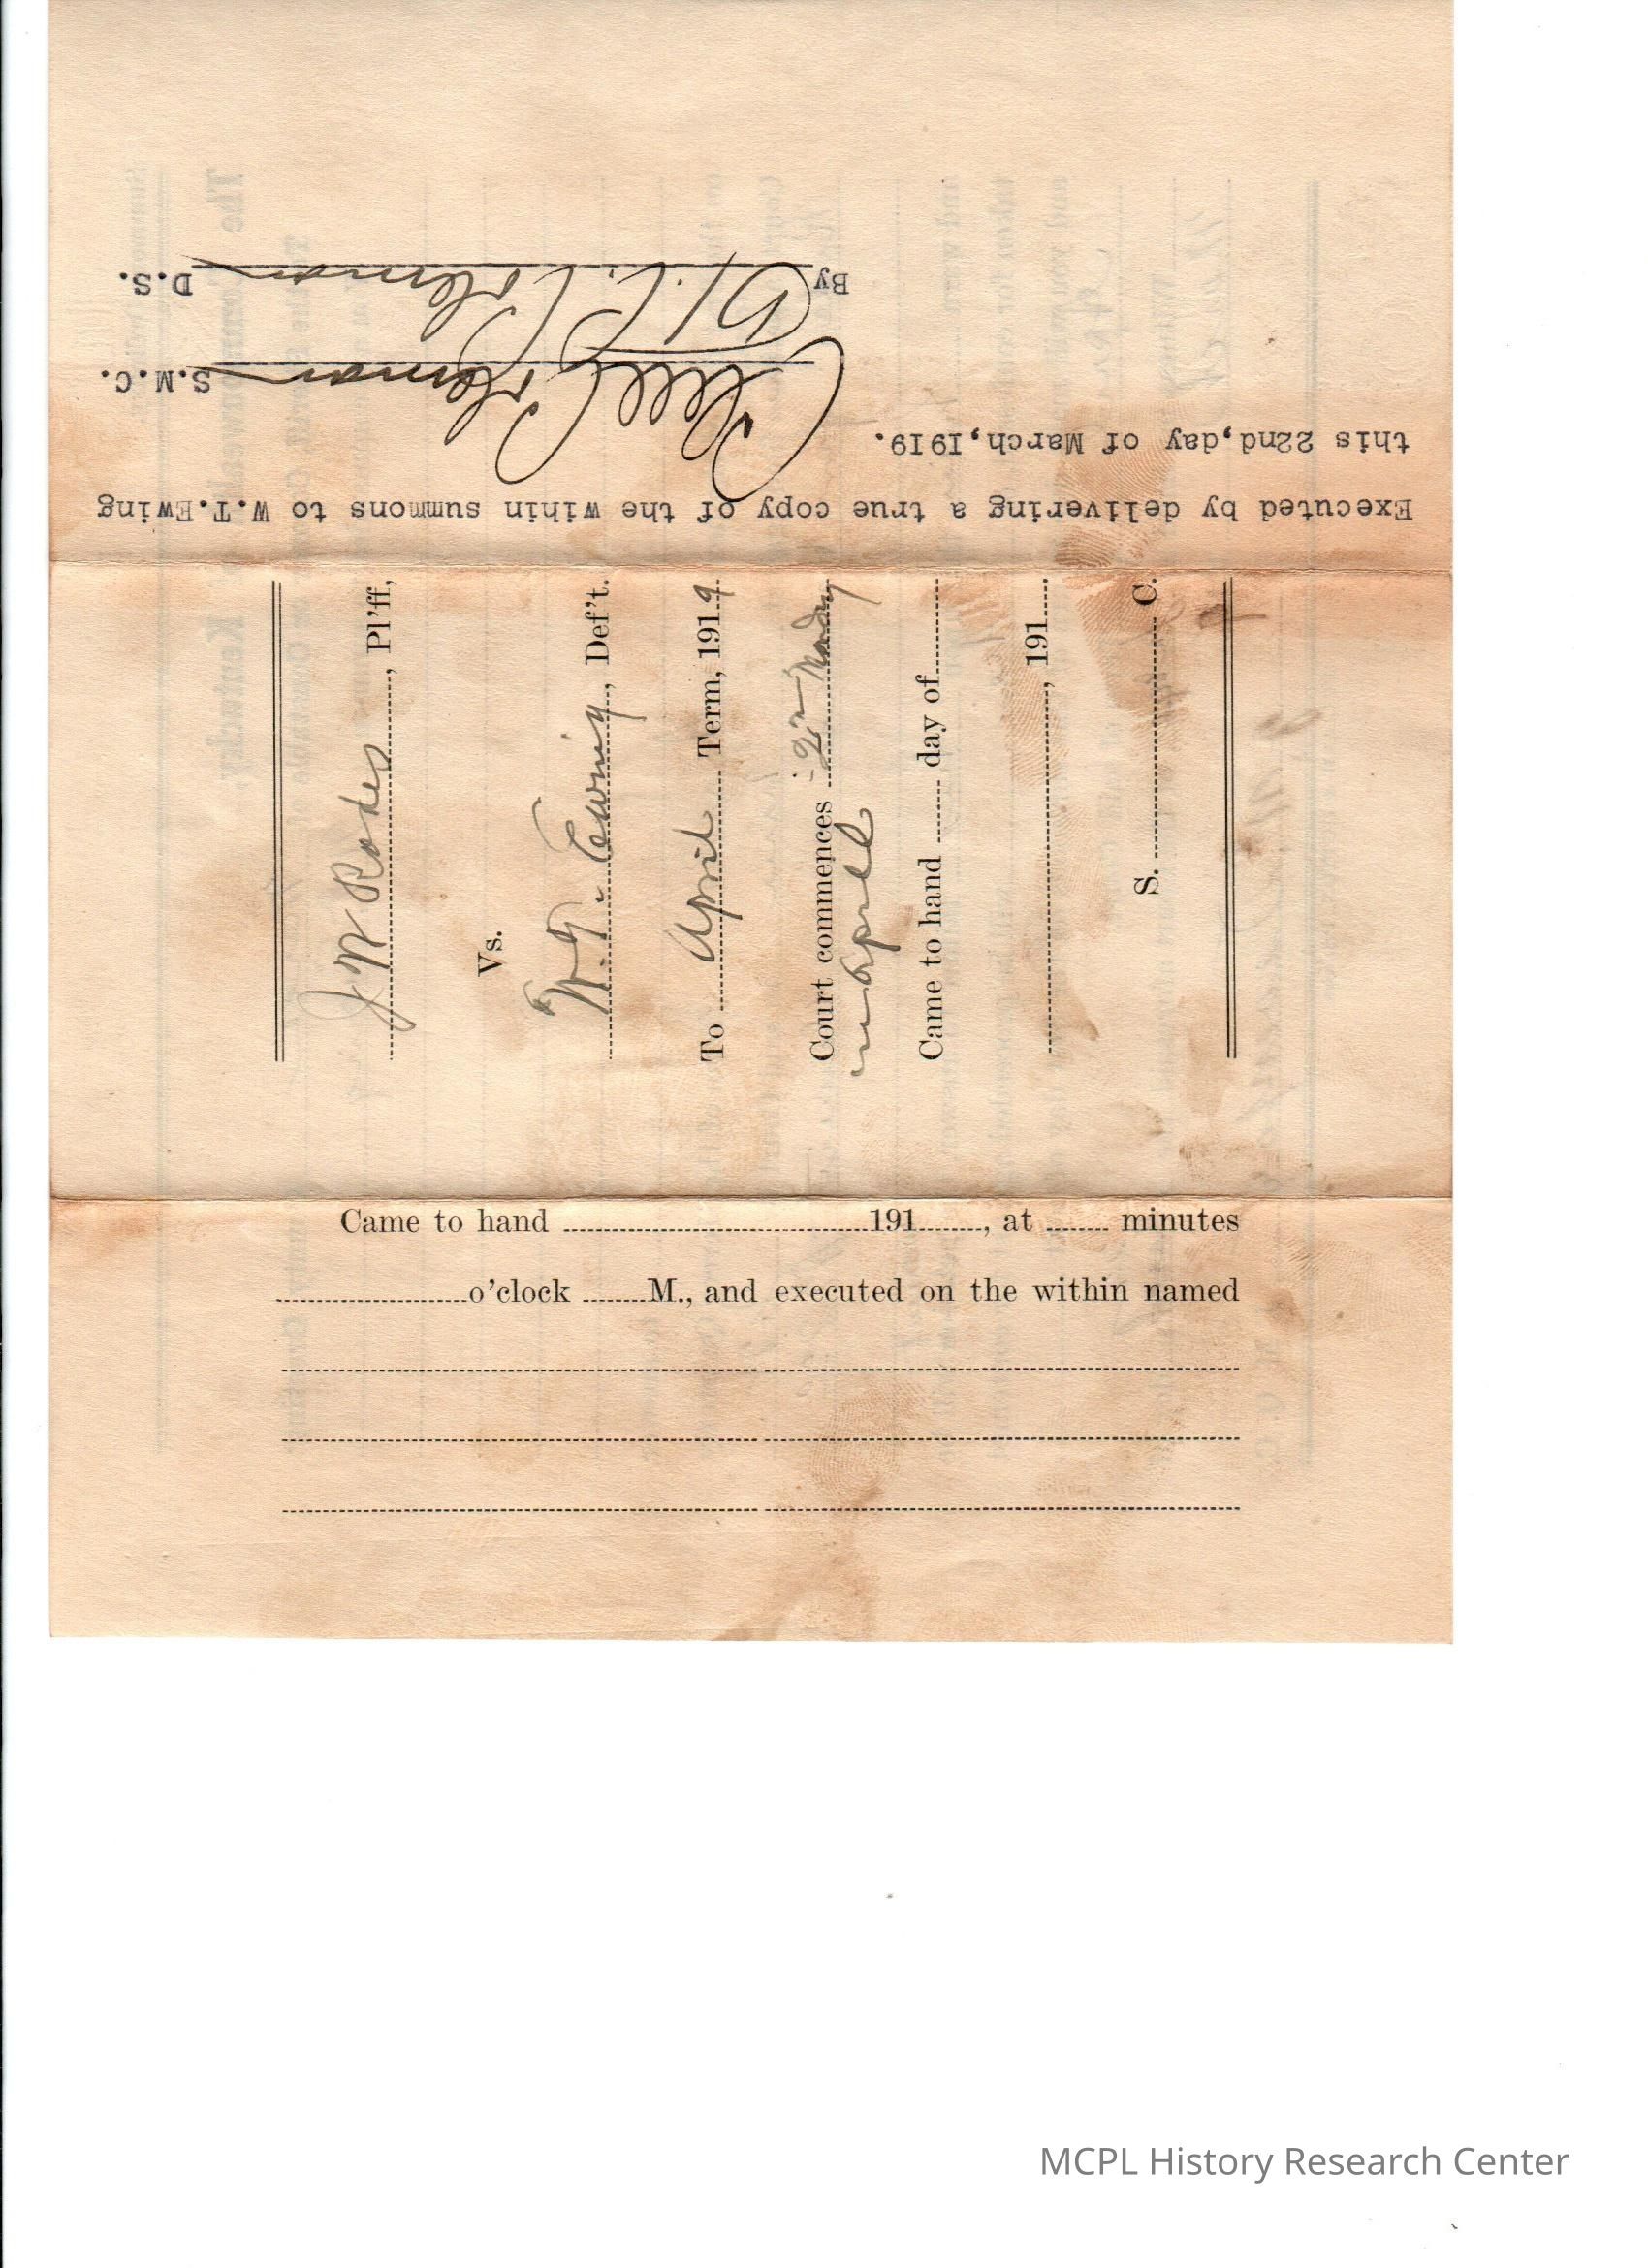 Executed by delivering a true copy of the wihin summons to W.T.Ewing
this 22nd,day of March,1919.
Coleman S.M.C.
By Coleman D.S.
J W Rodes, Pl'ff,
Vs.
W.T. Ewing, Def't.
To April Term, 1919
Court commences 2nd Monday
in April
Came to hand day of
, 191
S. C.
Came to hand 191 , at minutes
o'clock M., and executed on the within named
MCPL History Research Center